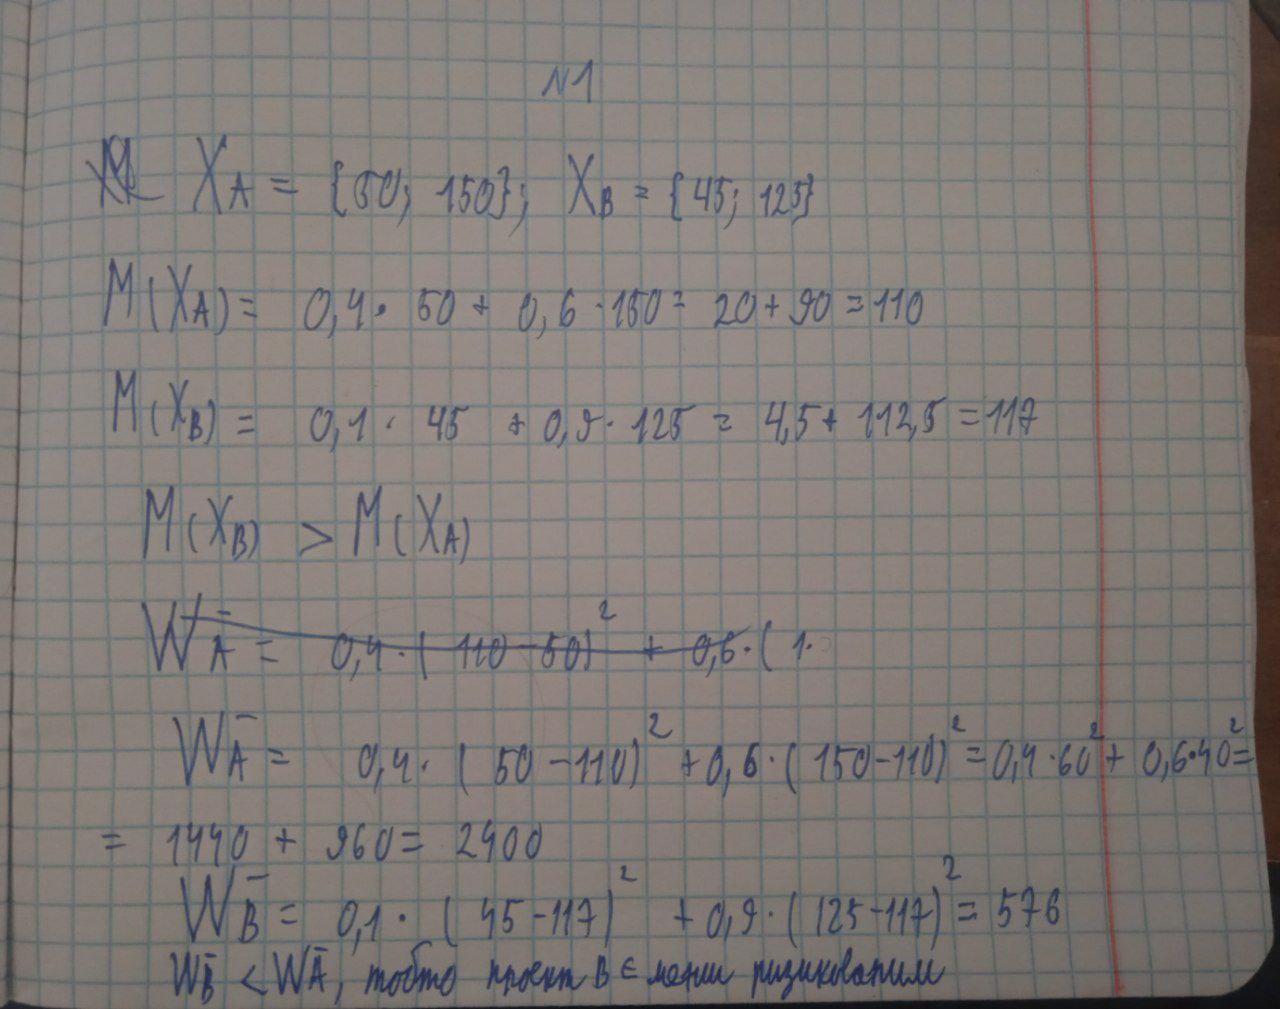 N1
X_A = {50; 150}; X_B = {45; 125}
M(X_A) = 0,4 · 50 + 0,6 · 150 = 20 + 90 = 110
M(X_B) = 0,1 · 45 + 0,9 · 125 = 4,5 + 112,5 = 117
M(X_B) > M(X_A)
W_A^- = 0,4 · (110 - 50)² + 0,6 · (1.
W_A^- = 0,4 · (50 - 110)² + 0,6 · (150 - 110)² = 0,4 · 60² + 0,6 · 40² =
= 1440 + 960 = 2400
W_B^- = 0,1 · (45 - 117)² + 0,9 · (125 - 117)² = 576
W_B^- < W_A^-, тобто проект B є менш ризикованим